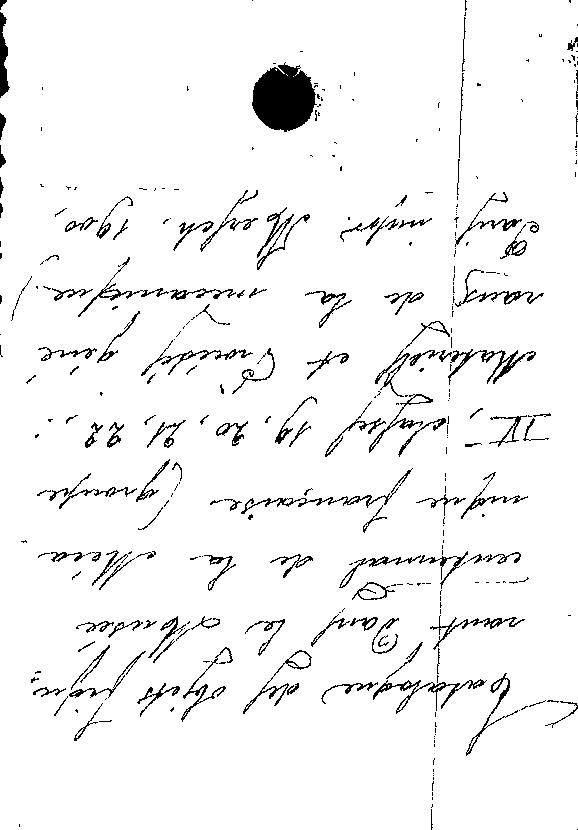 Catalogue des objets figu-
rant dans le Musée
centennal de la Méca
nique française (groupe
IV, classes 19, 20, 21, 22, :
Matériels et Procédés géné
raux de la mécanique.)
Paris, impr. Mersch, 1900,